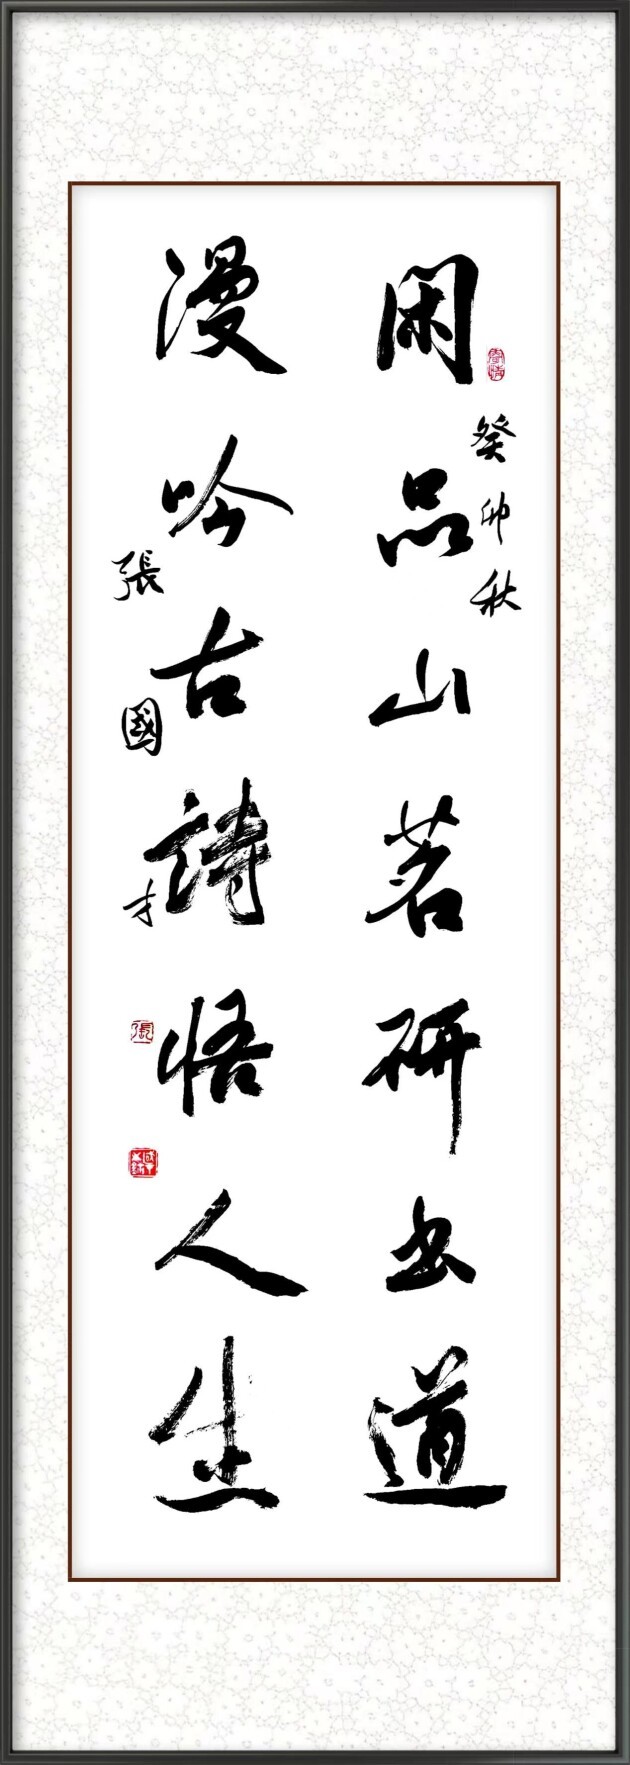 閑品山茗研书道
癸卯秋
漫吟古詩悟人生
張國才
張